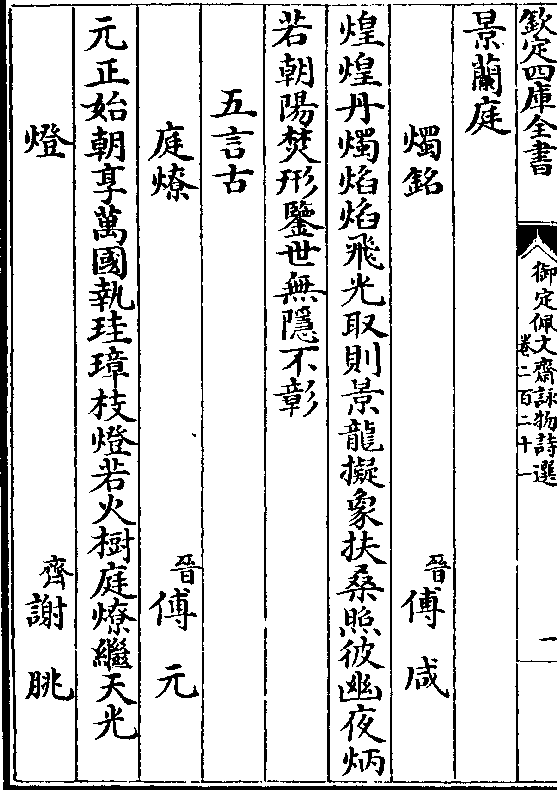 欽定四庫全書
御定佩文齋詠物詩選
卷二百二十一
一
景蘭庭
燭銘 晉傅咸
煌煌丹燭焰焰飛光取則景龍擬象扶桑照彼幽夜炳
若朝陽焚形鑒世無隱不彰
五言古
庭燎 晉傅元
元正始朝享萬國執珪璋枝燈若火樹庭燎繼天光
燈 齊謝朓